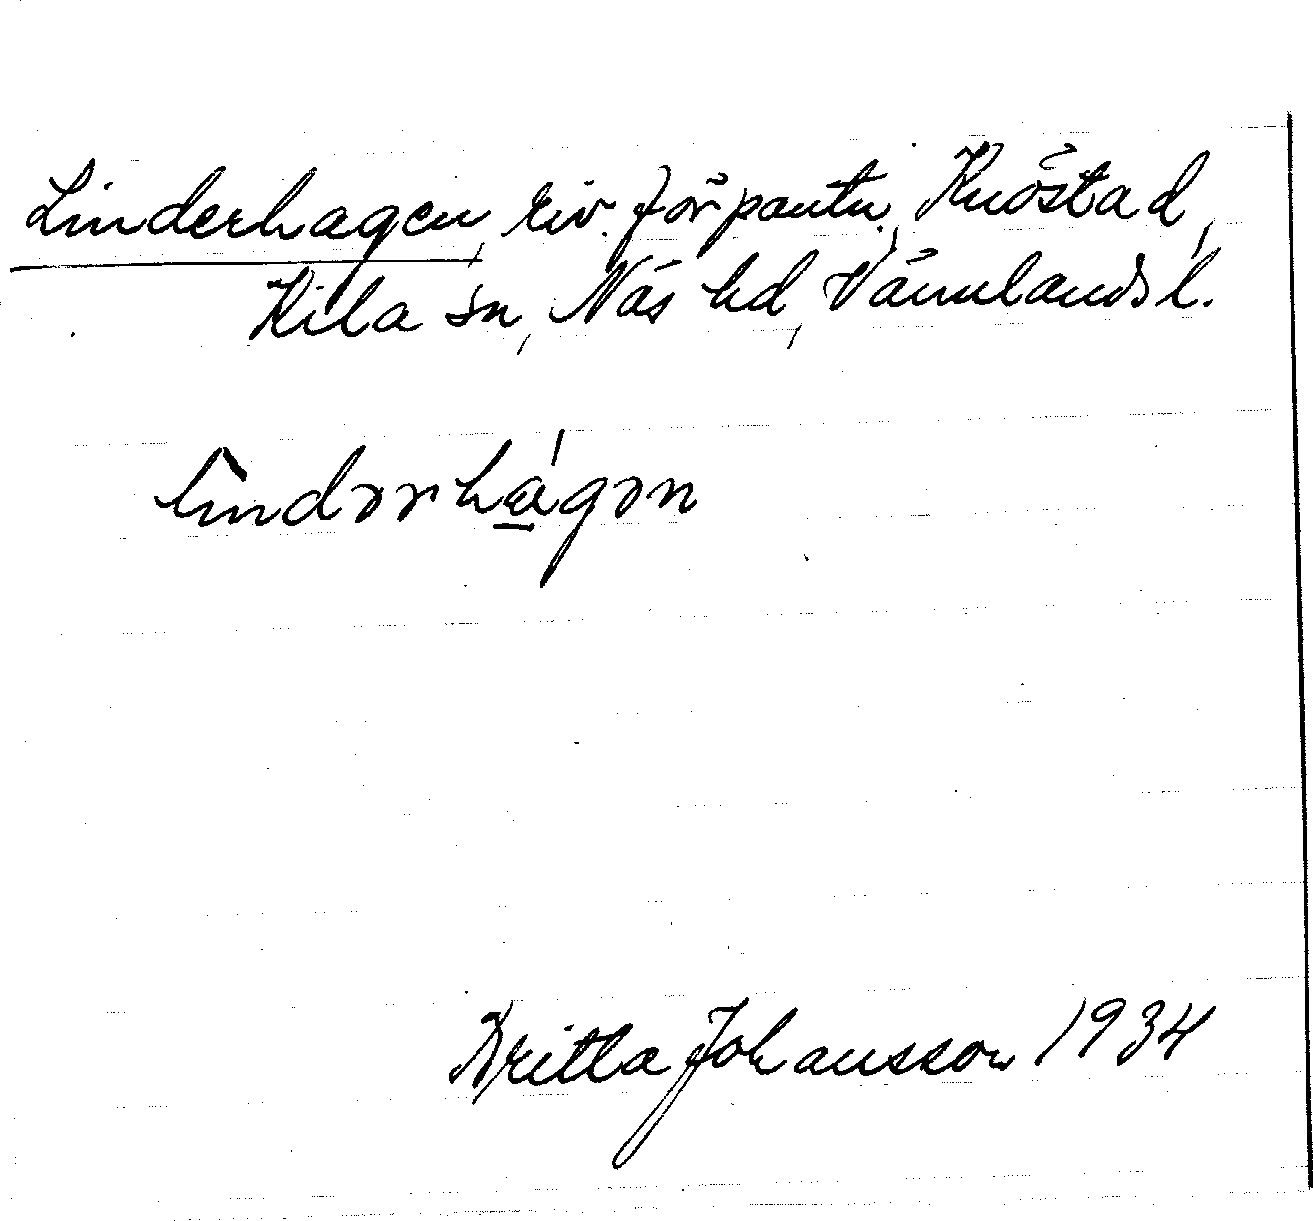 Linderhagen, riv. förpantn., Knöstad,
Kila sn, Näs hd, Värmlands l.
lìndərhá̱gən
Britta Johansson 1934